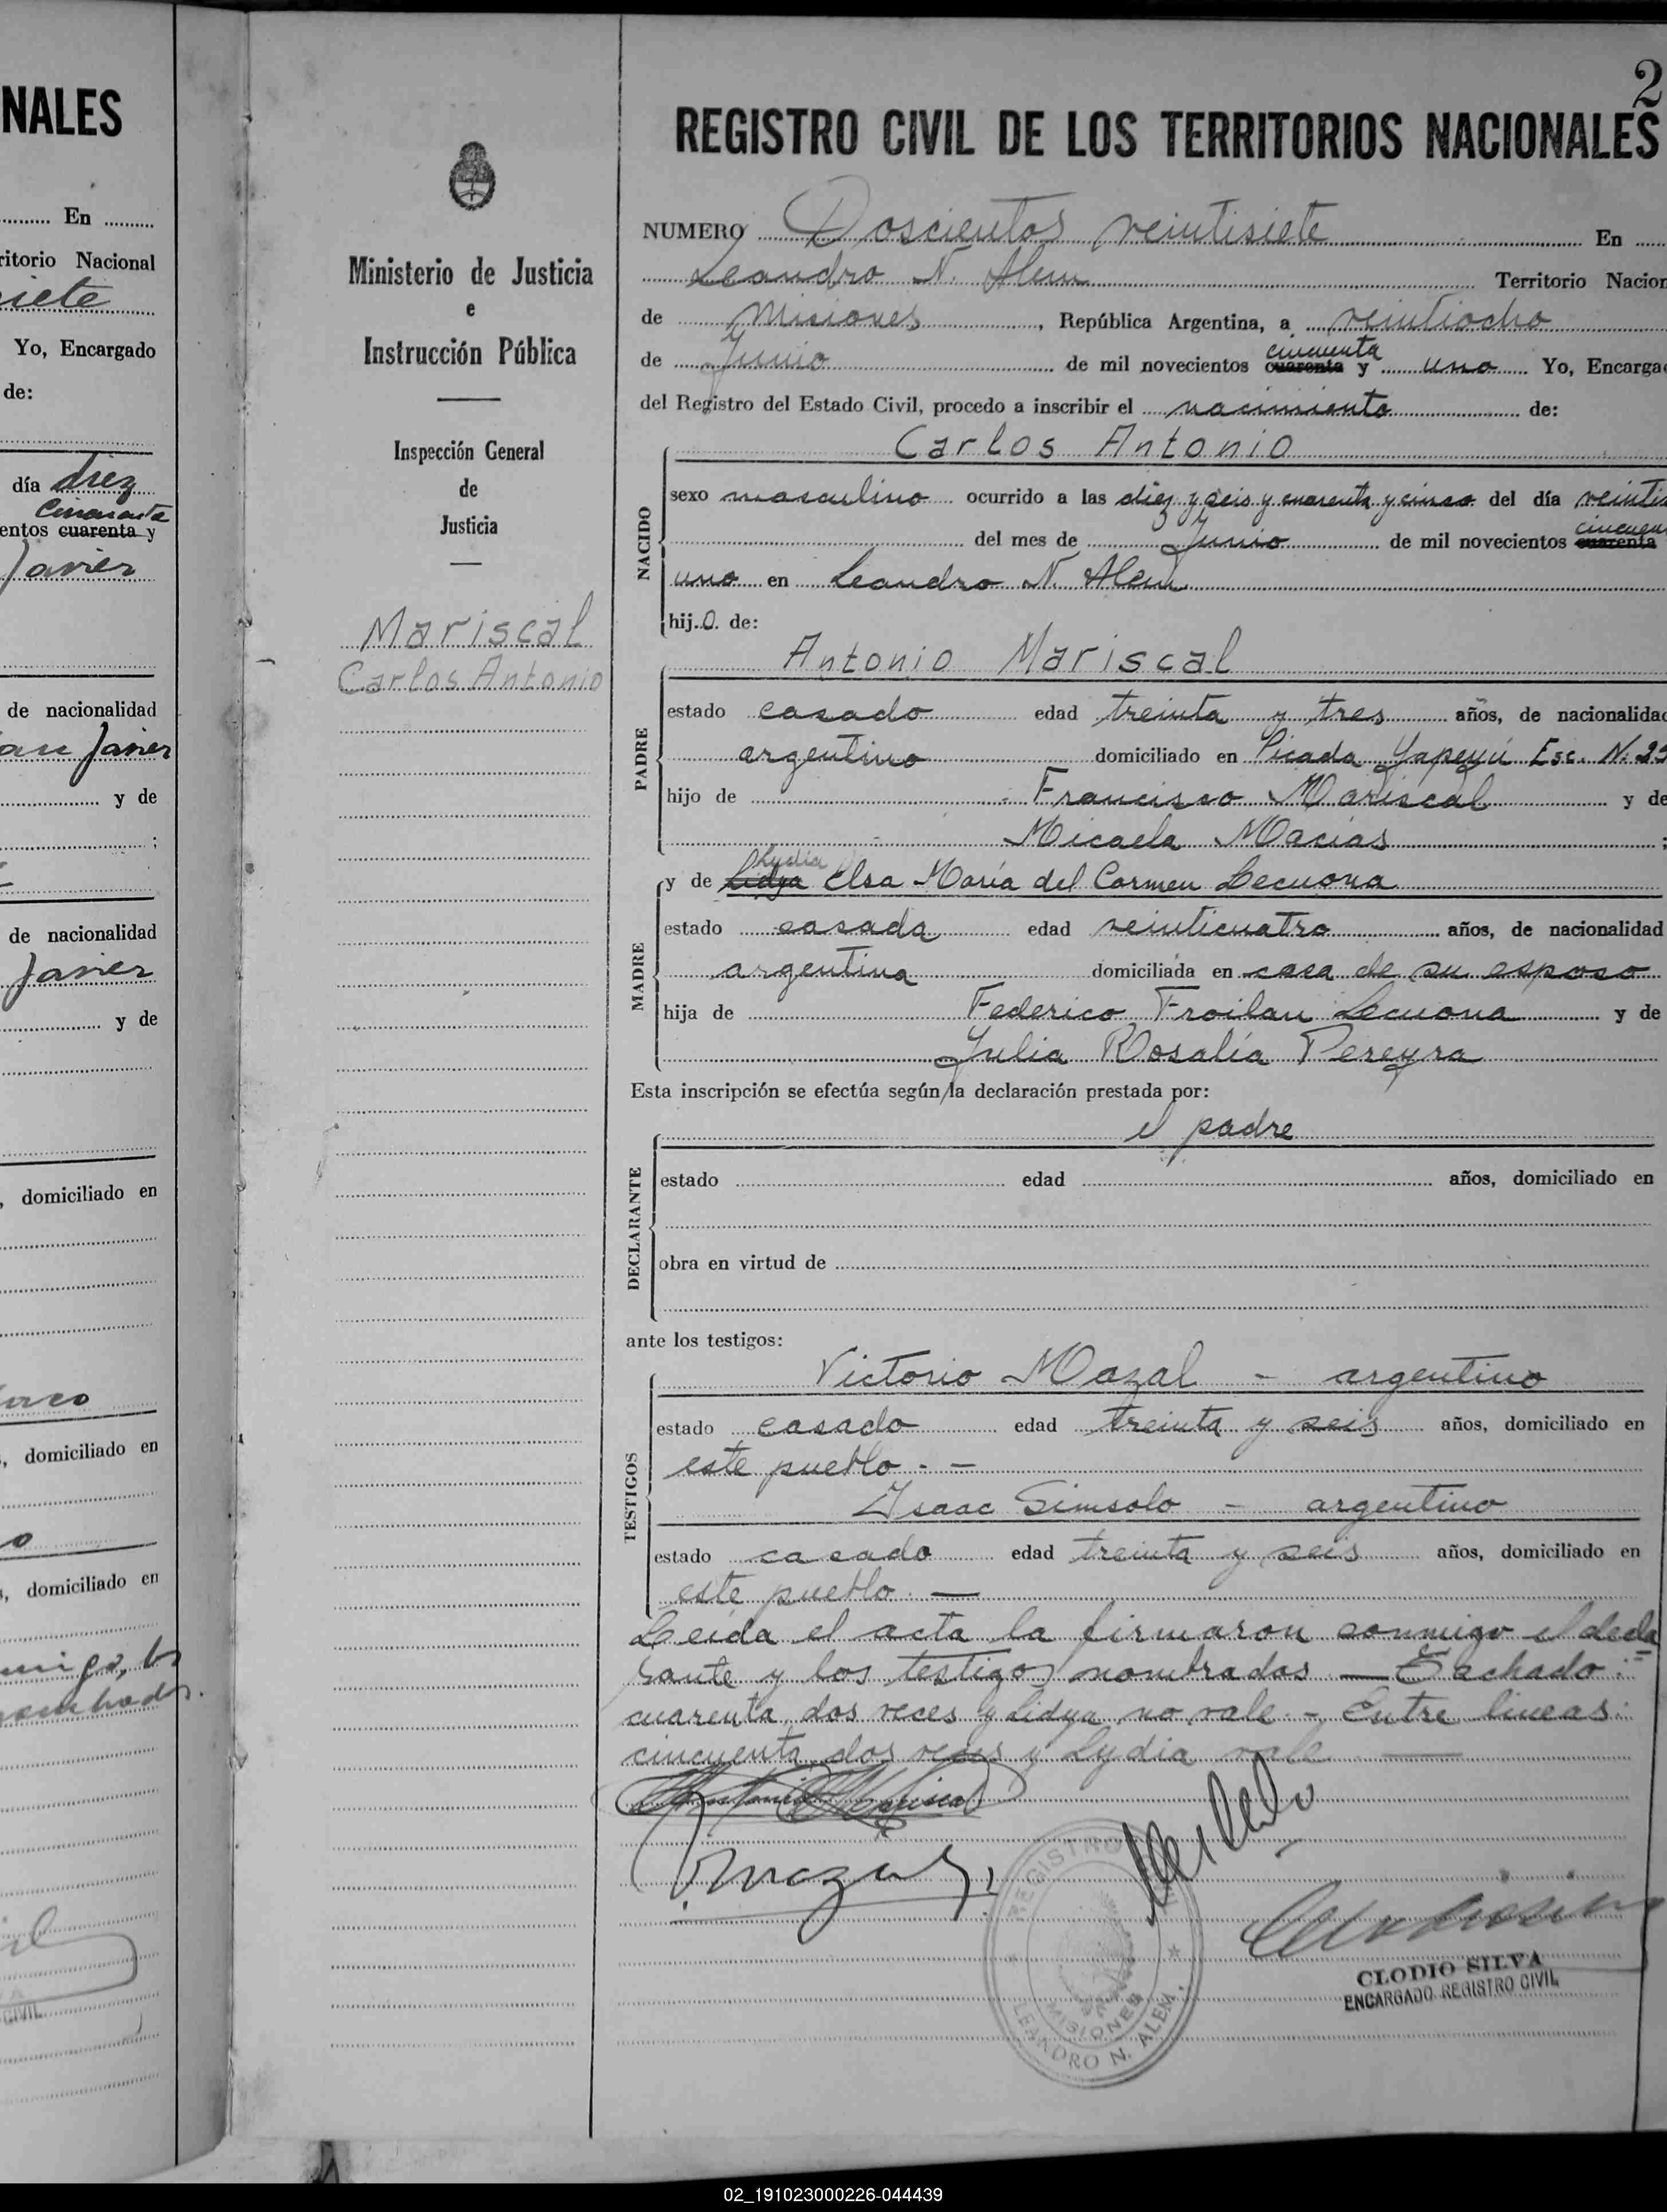 NALES
En
ritorio Nacional
siete
Yo, Encargado
de:
día diez
Cincuenta
entos cuarenta y
Javier
de nacionalidad
San Javier
y de
;
de nacionalidad
Javier
y de
, domiciliado en
, domiciliado en
, domiciliado en
CIVIL
Ministerio de Justicia
e
Instrucción Pública
Inspección General
de
Justicia
Mariscal
Carlos Antonio
2
REGISTRO CIVIL DE LOS TERRITORIOS NACIONALES
NUMERO Doscientos veintisiete En
Leandro N. Alem Territorio Nacion
de Misiones, República Argentina, a veintiocho
cincuenta
de Junio de mil novecientos cuarenta y uno Yo, Encarga
del Registro del Estado Civil, procedo a inscribir el nacimiento de:
Carlos Antonio
NACIDO
sexo masculino ocurrido a las diez y seis y cuarenta y cinco del día veinti
cincuen
del mes de Junio de mil novecientos cuarenta
uno en Leandro N. Alem
hijo de:
Antonio Mariscal
PADRE
estado casado edad treinta y tres años, de nacionalidad
argentino domiciliado en Picada Yapeyú Esc. N.
hijo de Francisco Mariscal y de
Micaela Macias ;
Lydia
y de Lidya Elsa María del Carmen Lecuona
MADRE
estado casada edad veinticuatro años, de nacionalidad
argentina domiciliada en casa de su esposo
hija de Federico Froilan Lecuona y de
Julia Rosalía Pereyra
Esta inscripción se efectúa según la declaración prestada por:
el padre
DECLARANTE
estado edad años, domiciliado en
obra en virtud de
ante los testigos:
Victorio Mazal - argentino
TESTIGOS
estado casado edad treinta y seis años, domiciliado en
este pueblo. -
Isaac Simsolo - argentino
estado casado edad treinta y seis años, domiciliado en
este pueblo. —
Leída el acta la firmaron conmigo el decla
rante y los testigos nombrados — Tachado:
cuarenta, dos veces y Lidya no vale. - Entre lineas:
cincuenta, dos veces y Lydia vale —
Antonio Mariscal
Mazal
REGISTRO
MISIONES
LEANDRO N. ALEM.
CLODIO SILVA
ENCARGADO REGISTRO CIVIL
02_191023000226-044439